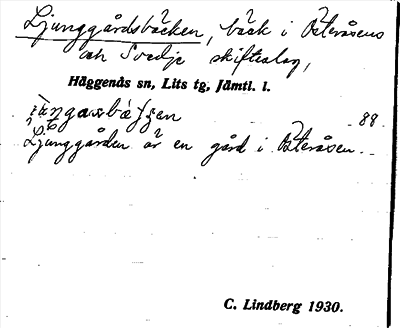 Ljunggårdsbäcken, bäck i Österåsens
och Svedje skifteslag,
Häggenås sn, Lits tg, Jämtl. l.
88.
Ljunggården är en gård i Österåsen.
C. Lindberg 1930.